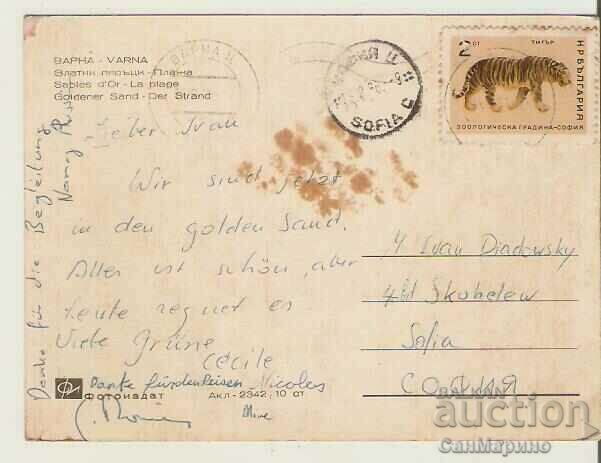 ВАРНА - VARNA
Златни пясъци - Плажа
Sables d'Or - La plage
Goldener Sand - Der Strand
ВАРНА
SOFIA C
2 СТ
ТИГЪР
НР БЪЛГАРИЯ
ЗООЛОГИЧЕСКА ГРАДИНА-СОФИЯ
Lieber Ivan
Wir sind jetzt
in den golden Sand.
Alles ist schön, aber
heute regnet es
Viele Grüne
Cécile
Danke für den Reisen Nicolas
Danke für die Begleitung
Ivan Diadowsky
Skobelew
Sofia
СОФИЯ
Фотоиздат Акл-2342, 10 ст
auction
СанМарино